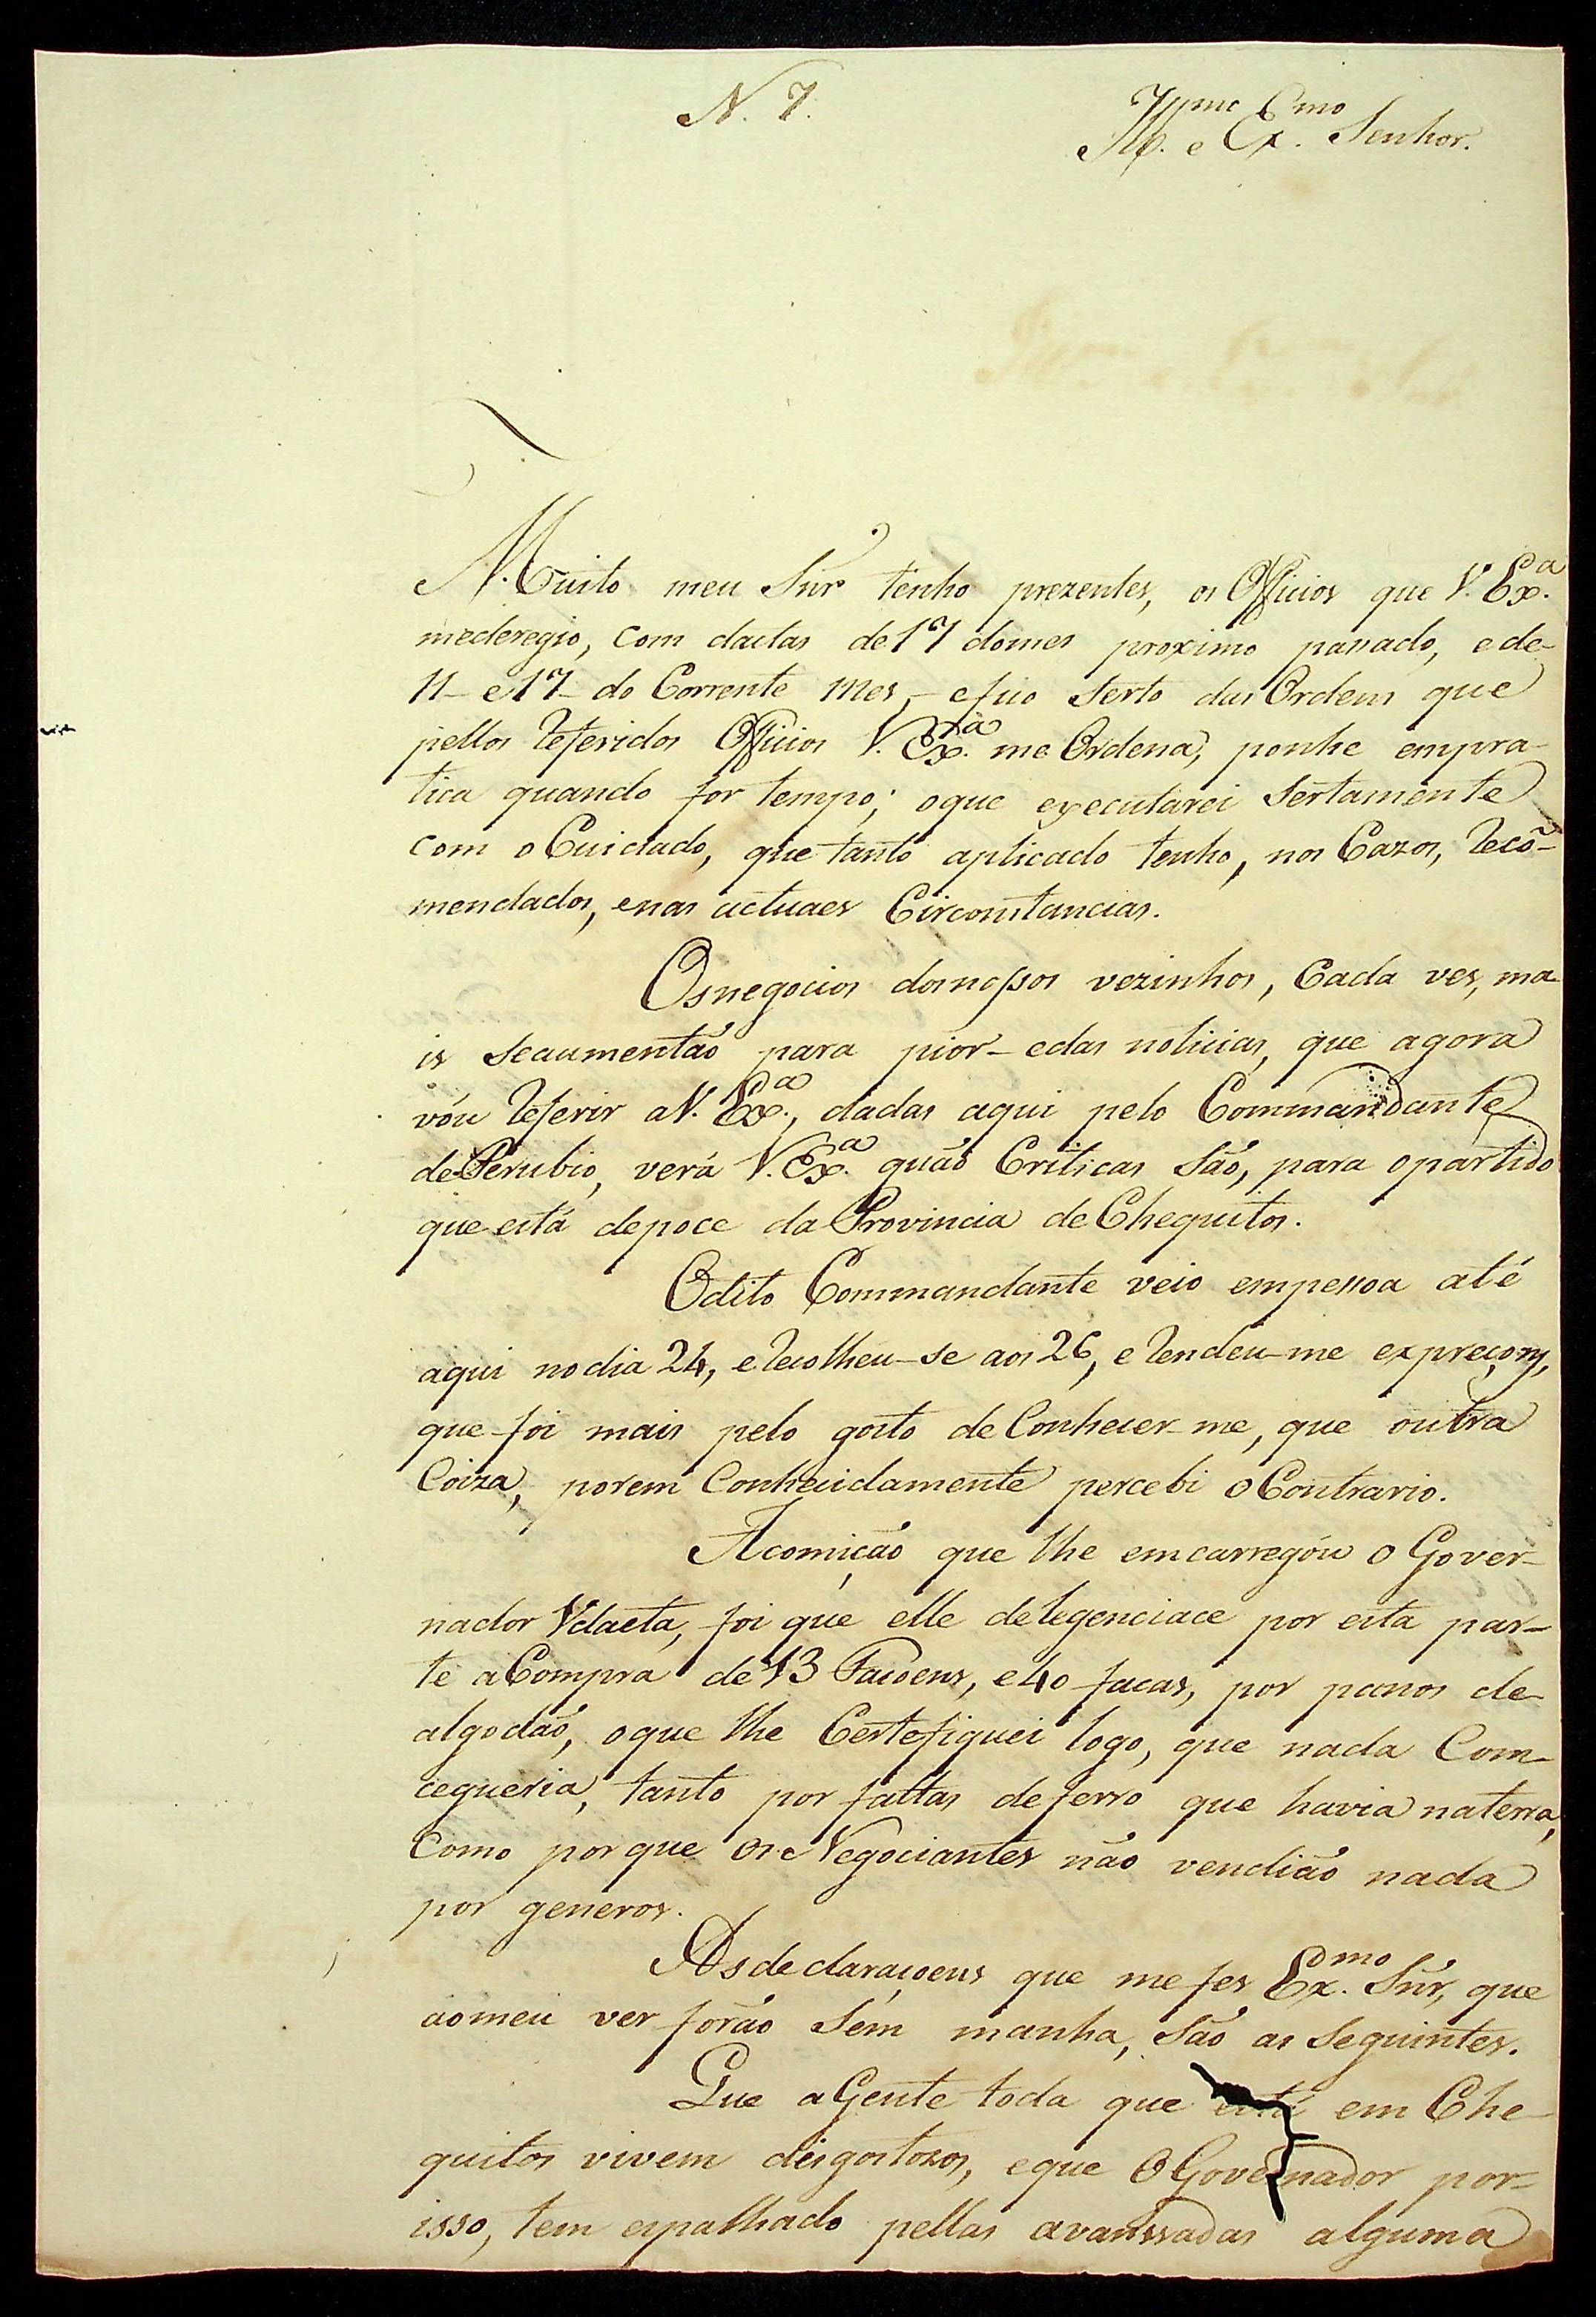 N. 7.
Ill.mo e Ex.mo Senhor.
Muito meu Snr tenho prezentes, os Officios que V. Ex.a
mederegio, com dactas de 17 domes proximo passado, e de
11 e 17 do Corrente mes, e fico serto das Ordens que
pellos referidos Officios V. Ex.a me Ordena, ponhe empra-
tica quando for tempo; oque executarei sertamente
com o Cuidado, que tanto aplicado tenho, nos Cazos, recõ-
mendados, enas actuaes Circonstancias.
Osnegocios dosnossos vezinhos, Cada ves, ma
is seaumentão para pior - edas noticias, que agora
vóu referir aV. Ex.a, dadas aqui pelo Commandante
de Perubio, verá V. Ex.a quão Criticas são, para opartido
que está depoce da Provincia de Chequitos.
Odito Commandante veio empessoa até
aqui nodia 24, e recolheu-se aos 26, e rendeu-me expreçons,
que foi mais pelo gosto de Conhecer-me, que outra
Coiza, porem Conhecidamente percebi oContrario.
Acomição que lhe emcarregóu o Gover-
nador Vdaeta, foi que elle delegenciace por esta par-
te aCompra de 13 Facoens, e 40 facas, por panos de
algodão, oque lhe Certefiquei logo, que nada Com-
cegueria, tanto por faltas deferro que havia naterra,
Como porque os Negociantes não vendião nada
por generos.
Asdeclaraçoens que me fes Ex.mo Snr, que
aomeu ver forão sem manha, são as seguintes.
Que aGente toda que está em Che-
quitos vivem desgostozos, eque OGovernador por-
isso, tem espalhado pellas avanssadas alguma